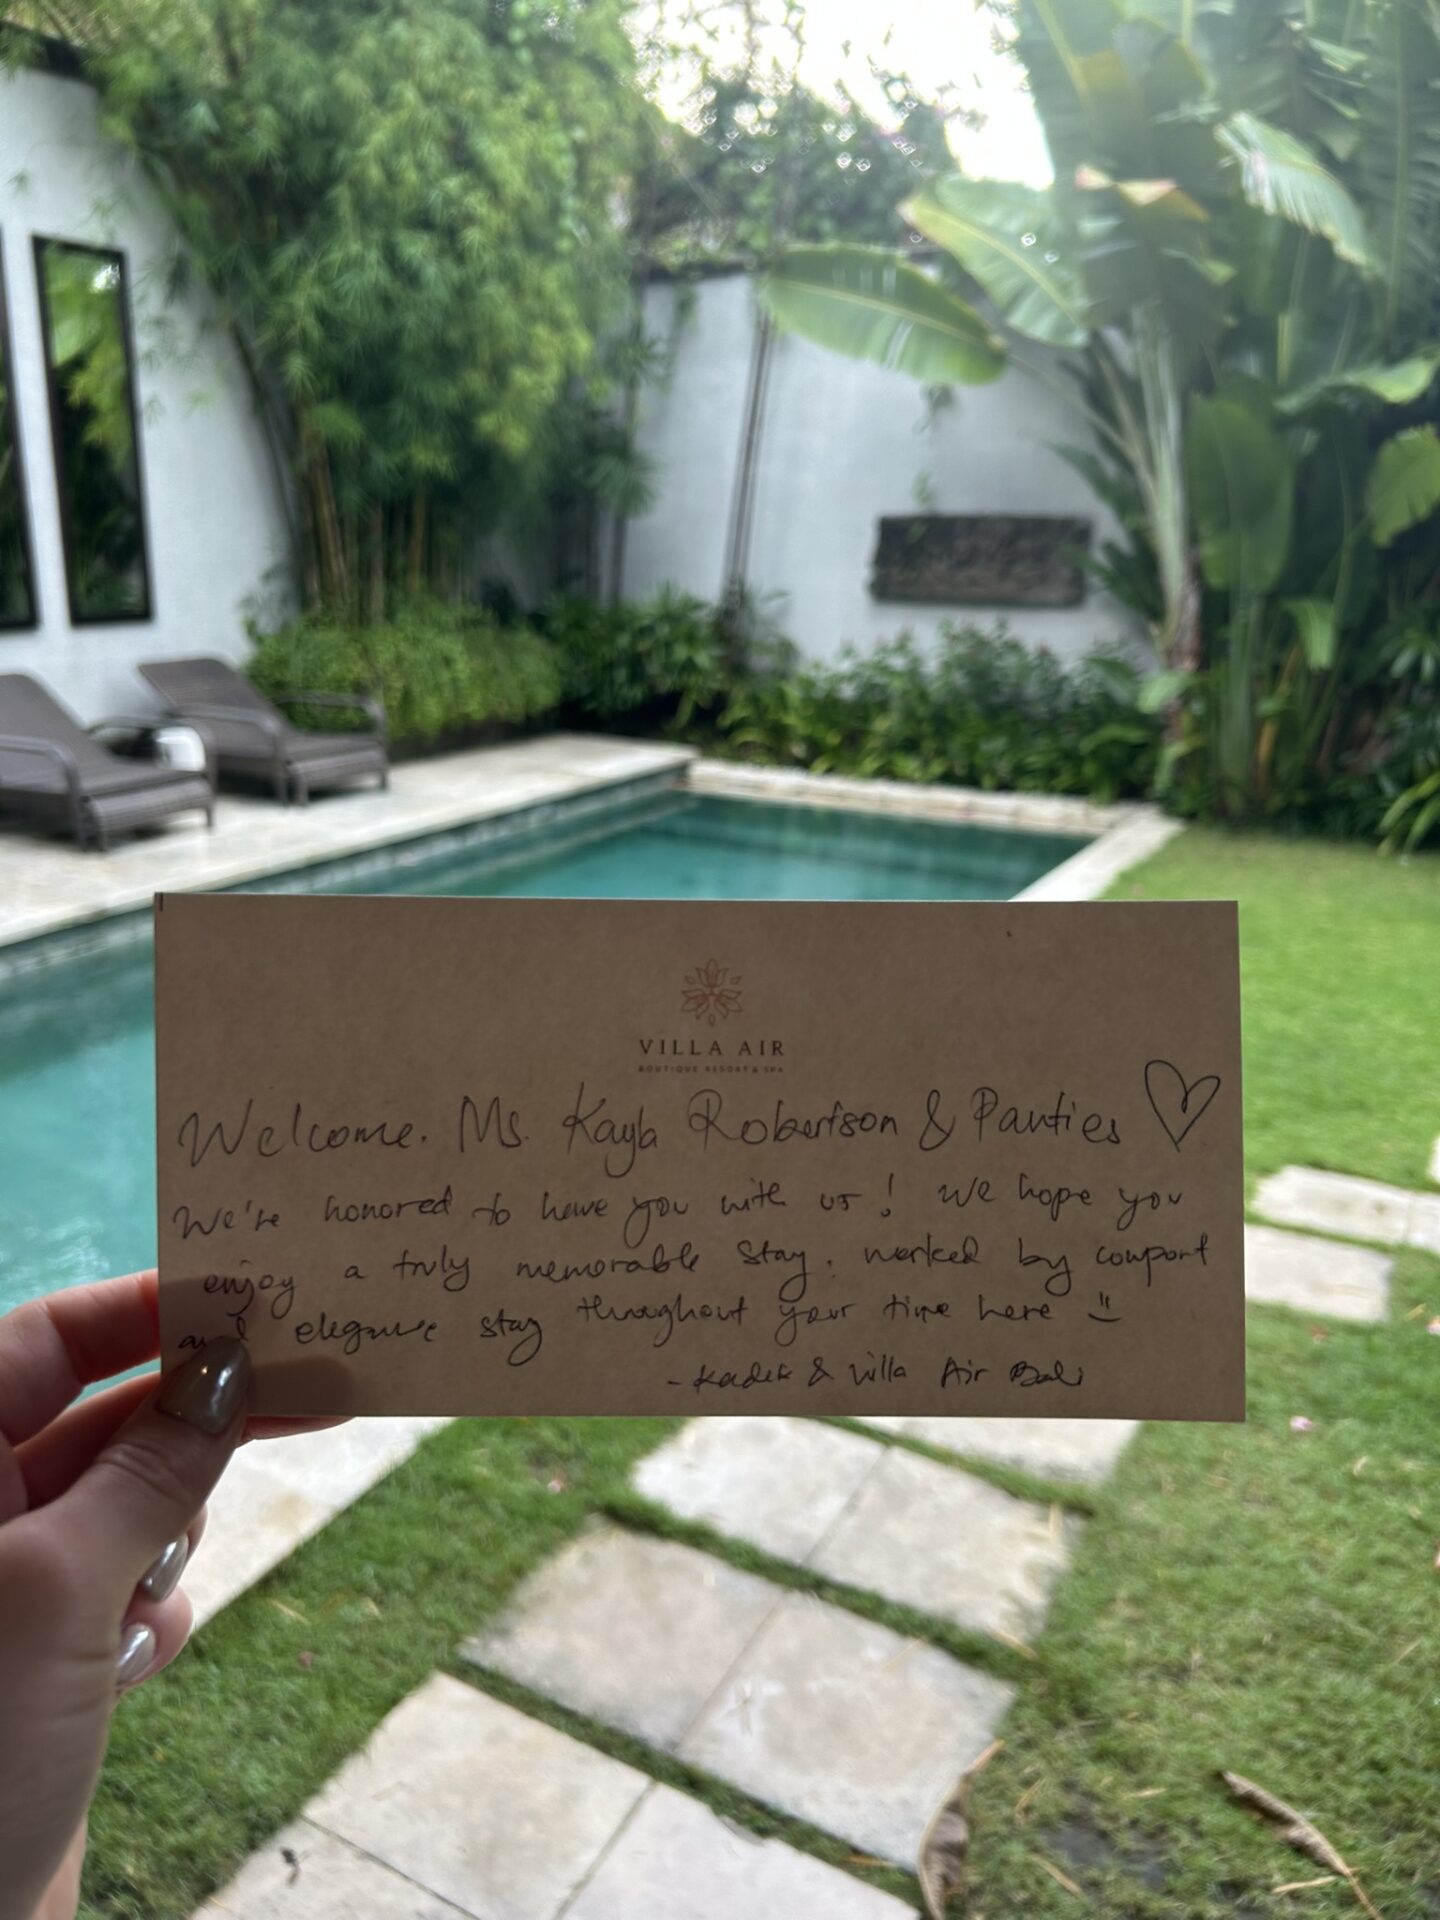 VILLA AIR
BOUTIQUE RESORT & SPA
Welcome. Ms. Kayla Robertson & Panties
We're honored to have you with us! We hope you
enjoy a truly memorable stay. marked by comport
and elegance stay throughout your time here
- Kadek & Villa Air Bali